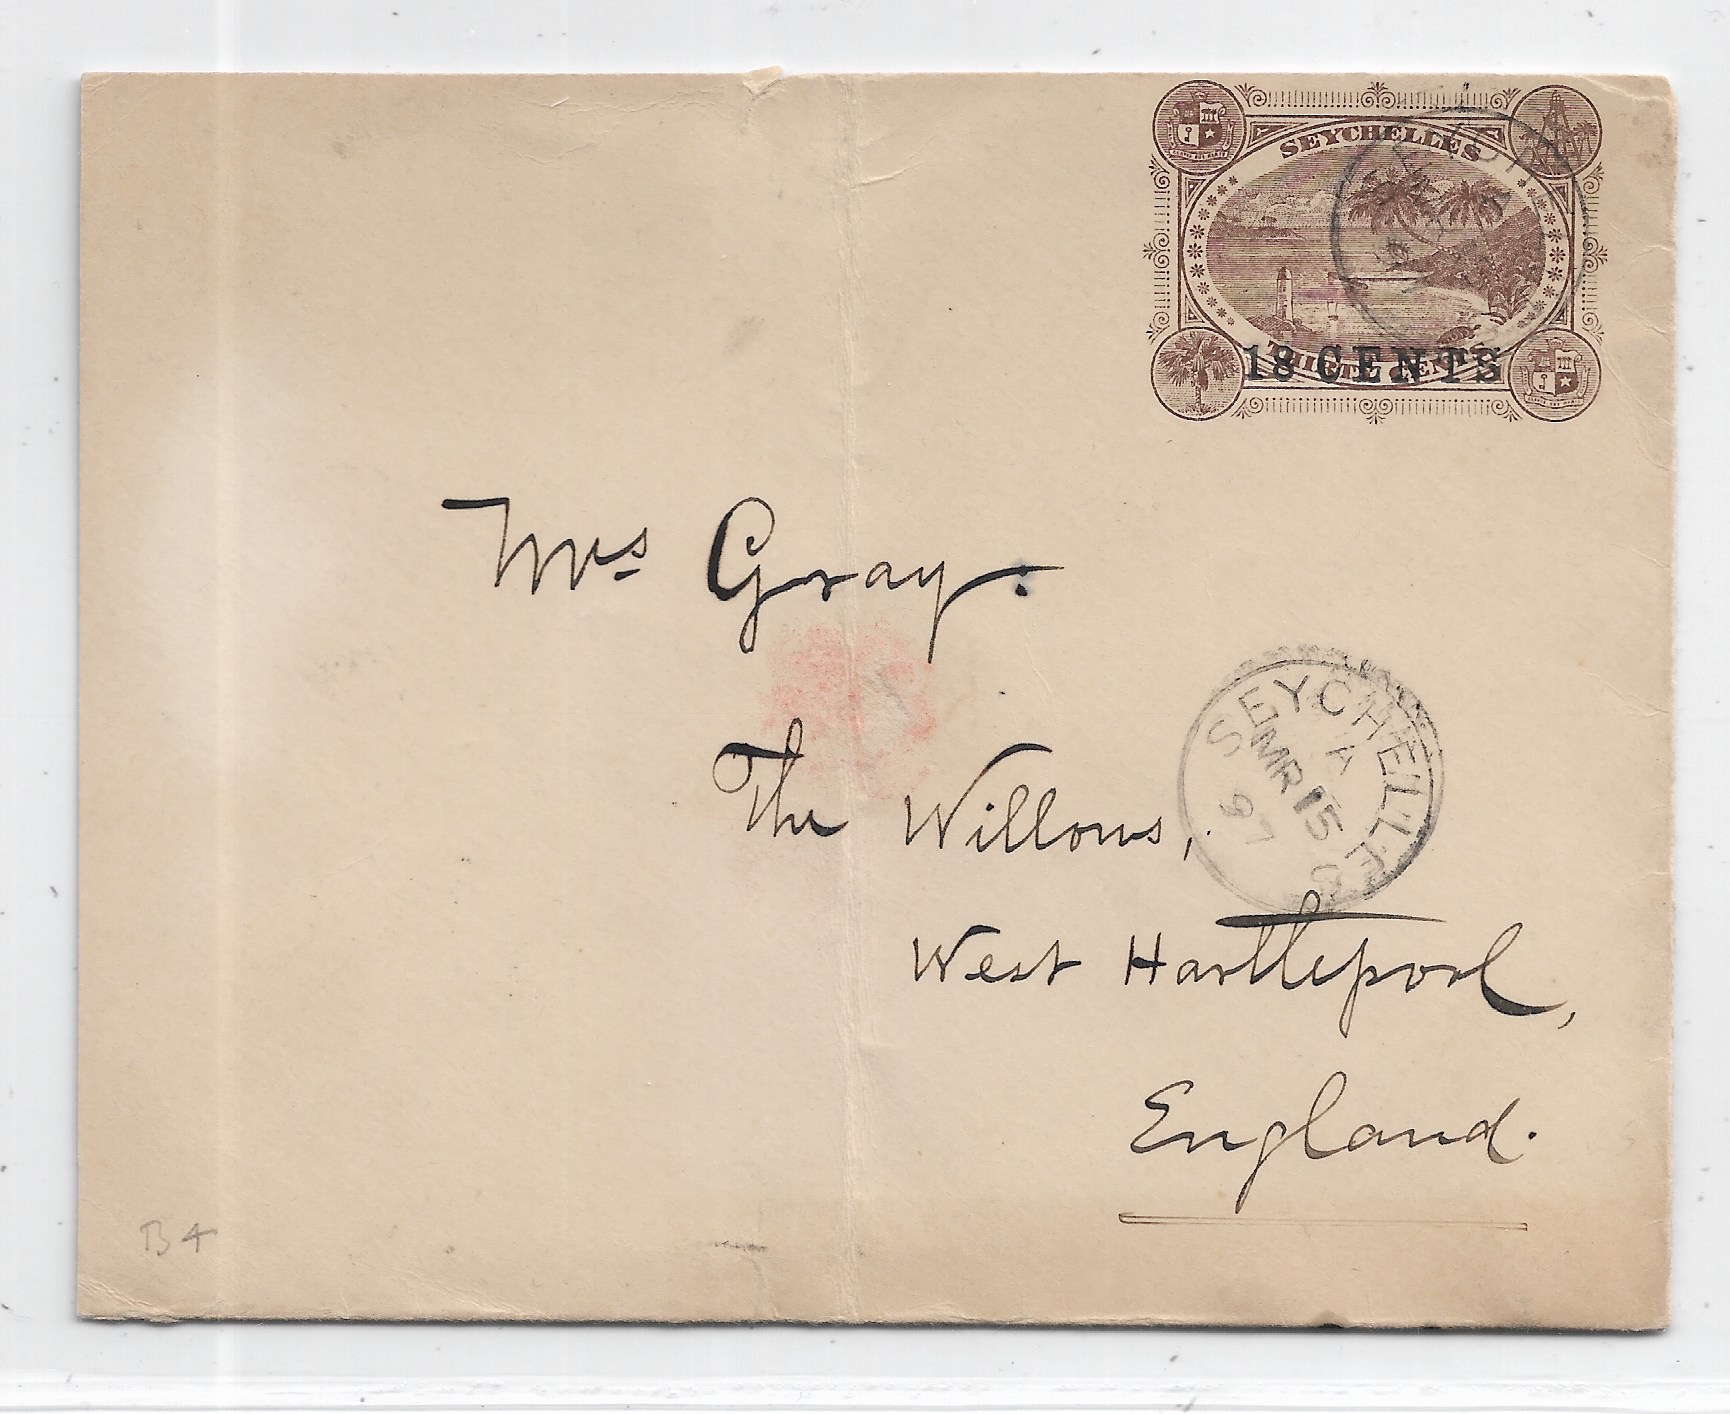 SEYCHELLES
THIRTY CENTS
18 CENTS
Mrs Gray.
The Willows,
SEYCHELLES
A
MR 15
97
C
West Hartlepool,
England.
B4